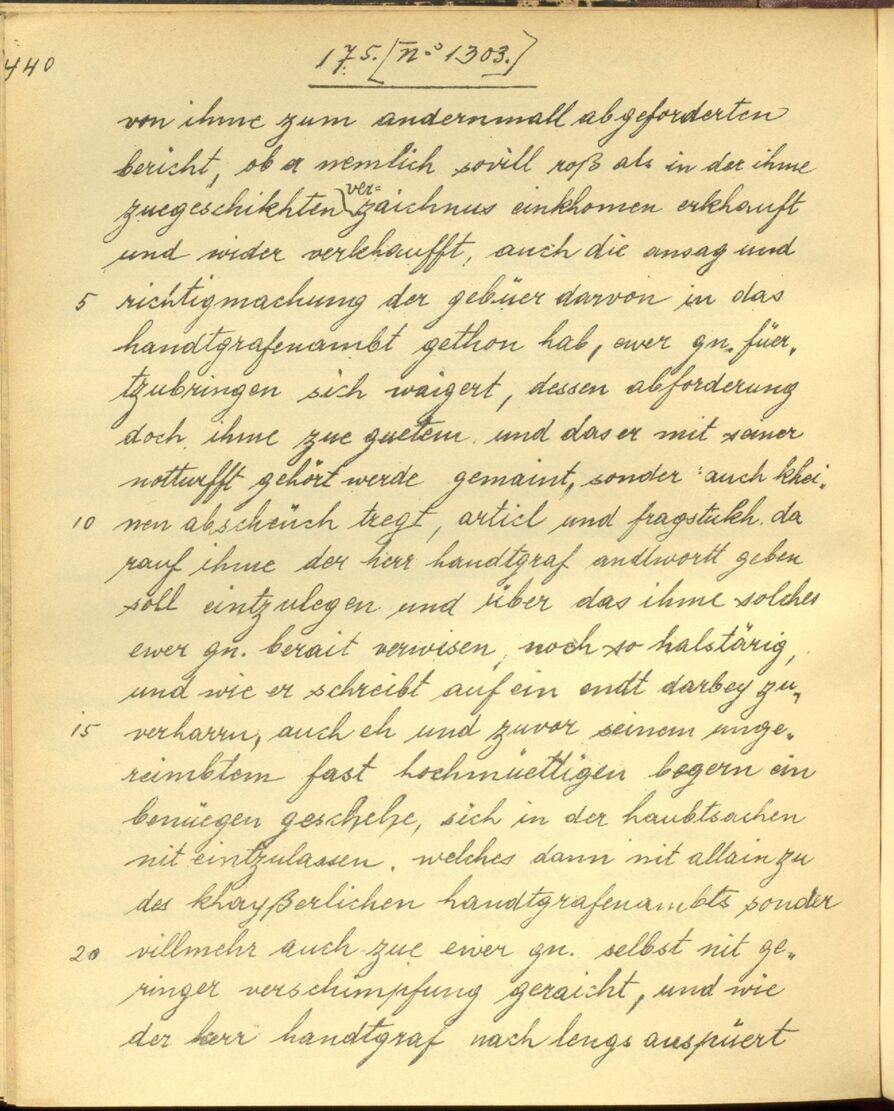 440
175. [n-o 1303.]
von ihme zum andernmall abgeforderten
bericht, ob er nemlich sovill roß als in der ihme
zuegeschikhten ver=zaichnus einkhomen erkhaufft
und wider verkhaufft, auch die ansag und
5 richtigmachung der gebüer darvon in das
handtgrafenambt gethon hab, ewer gn. füer„
tzubringen sich waigert, dessen abforderung
doch ihme zue guetem und das er mit seiner
notturfft gehört werde gemaint, sonder auch khei„
10 nen abscheüch tregt, articl und fragstukh da
rauf ihme der herr handtgraf andtwortt geben
soll eintzulegen und über das ihme solches
ewer gn. berait verwisen, noch so halstärig,
und wie er schreibt auf ein endt darbey zu„
15 verharrn, auch eh und zuvor seinem unge„
reimbtem fast hochmüettigen begern ein
benüegen geschehe, sich in der haubtsachen
nit eintzulassen. welches dann nit allain zu
des khayßerlichen handtgrafenambts sonder
20 villmehr auch zue ewer gn. selbst nit ge„
ringer verschimpfung geraicht, und wie
der herr handtgraf nach lengs auspüert